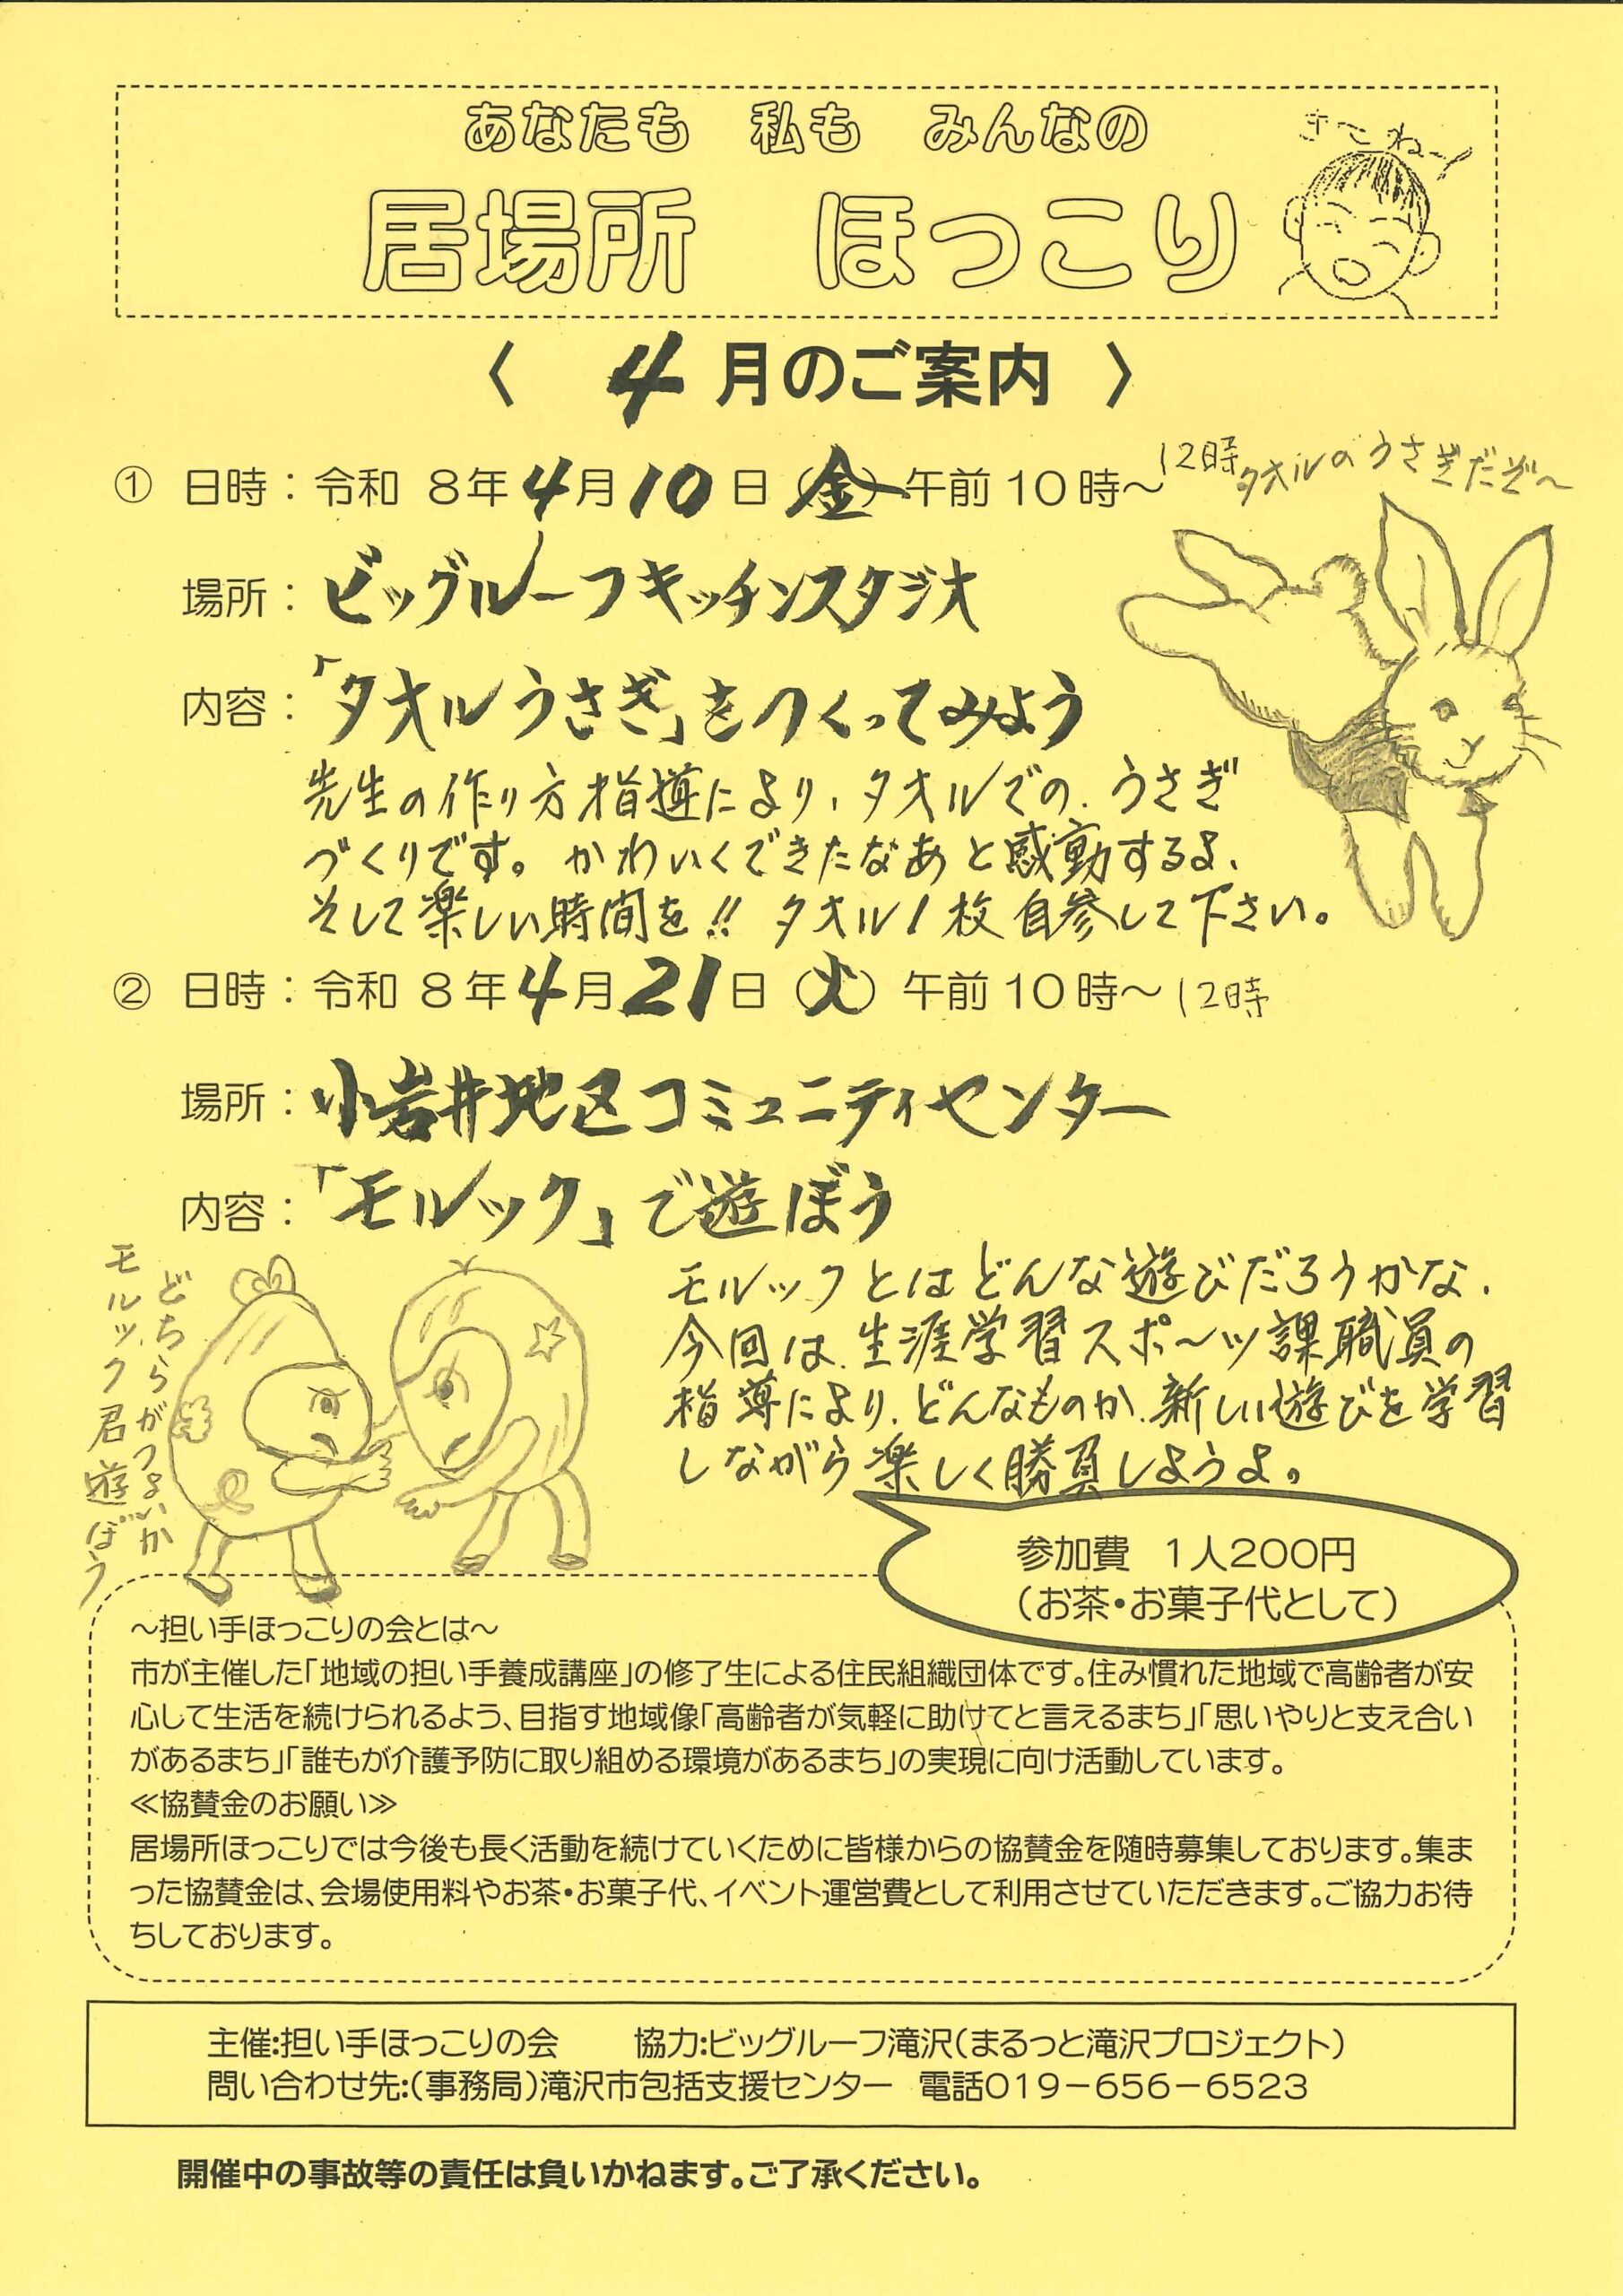 あなたも 私も みんなの
きてね～
居場所 ほっこり
〈 4月のご案内 〉
① 日時：令和 8年4月10日（金）午前10時～12時
タオルのうさぎだぞ～
場所：ビッグルーフキッチンスタジオ
内容：「タオルうさぎ」をつくってみよう
先生の作り方指導により、タオルでの、うさぎ
づくりです。かわいくできたなあと感動するよ、
そして楽しい時間を!! タオル1枚自参して下さい。
② 日時：令和 8年4月21日（火）午前10時～12時
場所：小岩井地区コミュニティセンター
内容：「モルック」で遊ぼう
モルックとはどんな遊びだろうかな、
今回は、生涯学習スポーツ課職員の
指導により、どんなものか、新しい遊びを学習
しながら楽しく勝負しようよ。
どちらがつよいか
モルック君遊ぼう
参加費 1人200円
（お茶・お菓子代として）
～担い手ほっこりの会とは～
市が主催した「地域の担い手養成講座」の修了生による住民組織団体です。住み慣れた地域で高齢者が安
心して生活を続けられるよう、目指す地域像「高齢者が気軽に助けてと言えるまち」「思いやりと支え合い
があるまち」「誰もが介護予防に取り組める環境があるまち」の実現に向け活動しています。
≪協賛金のお願い≫
居場所ほっこりでは今後も長く活動を続けていくために皆様からの協賛金を随時募集しております。集ま
った協賛金は、会場使用料やお茶・お菓子代、イベント運営費として利用させていただきます。ご協力お待
ちしております。
主催:担い手ほっこりの会 協力:ビッグルーフ滝沢（まるっと滝沢プロジェクト）
問い合わせ先:（事務局）滝沢市包括支援センター 電話019－656－6523
開催中の事故等の責任は負いかねます。ご了承ください。